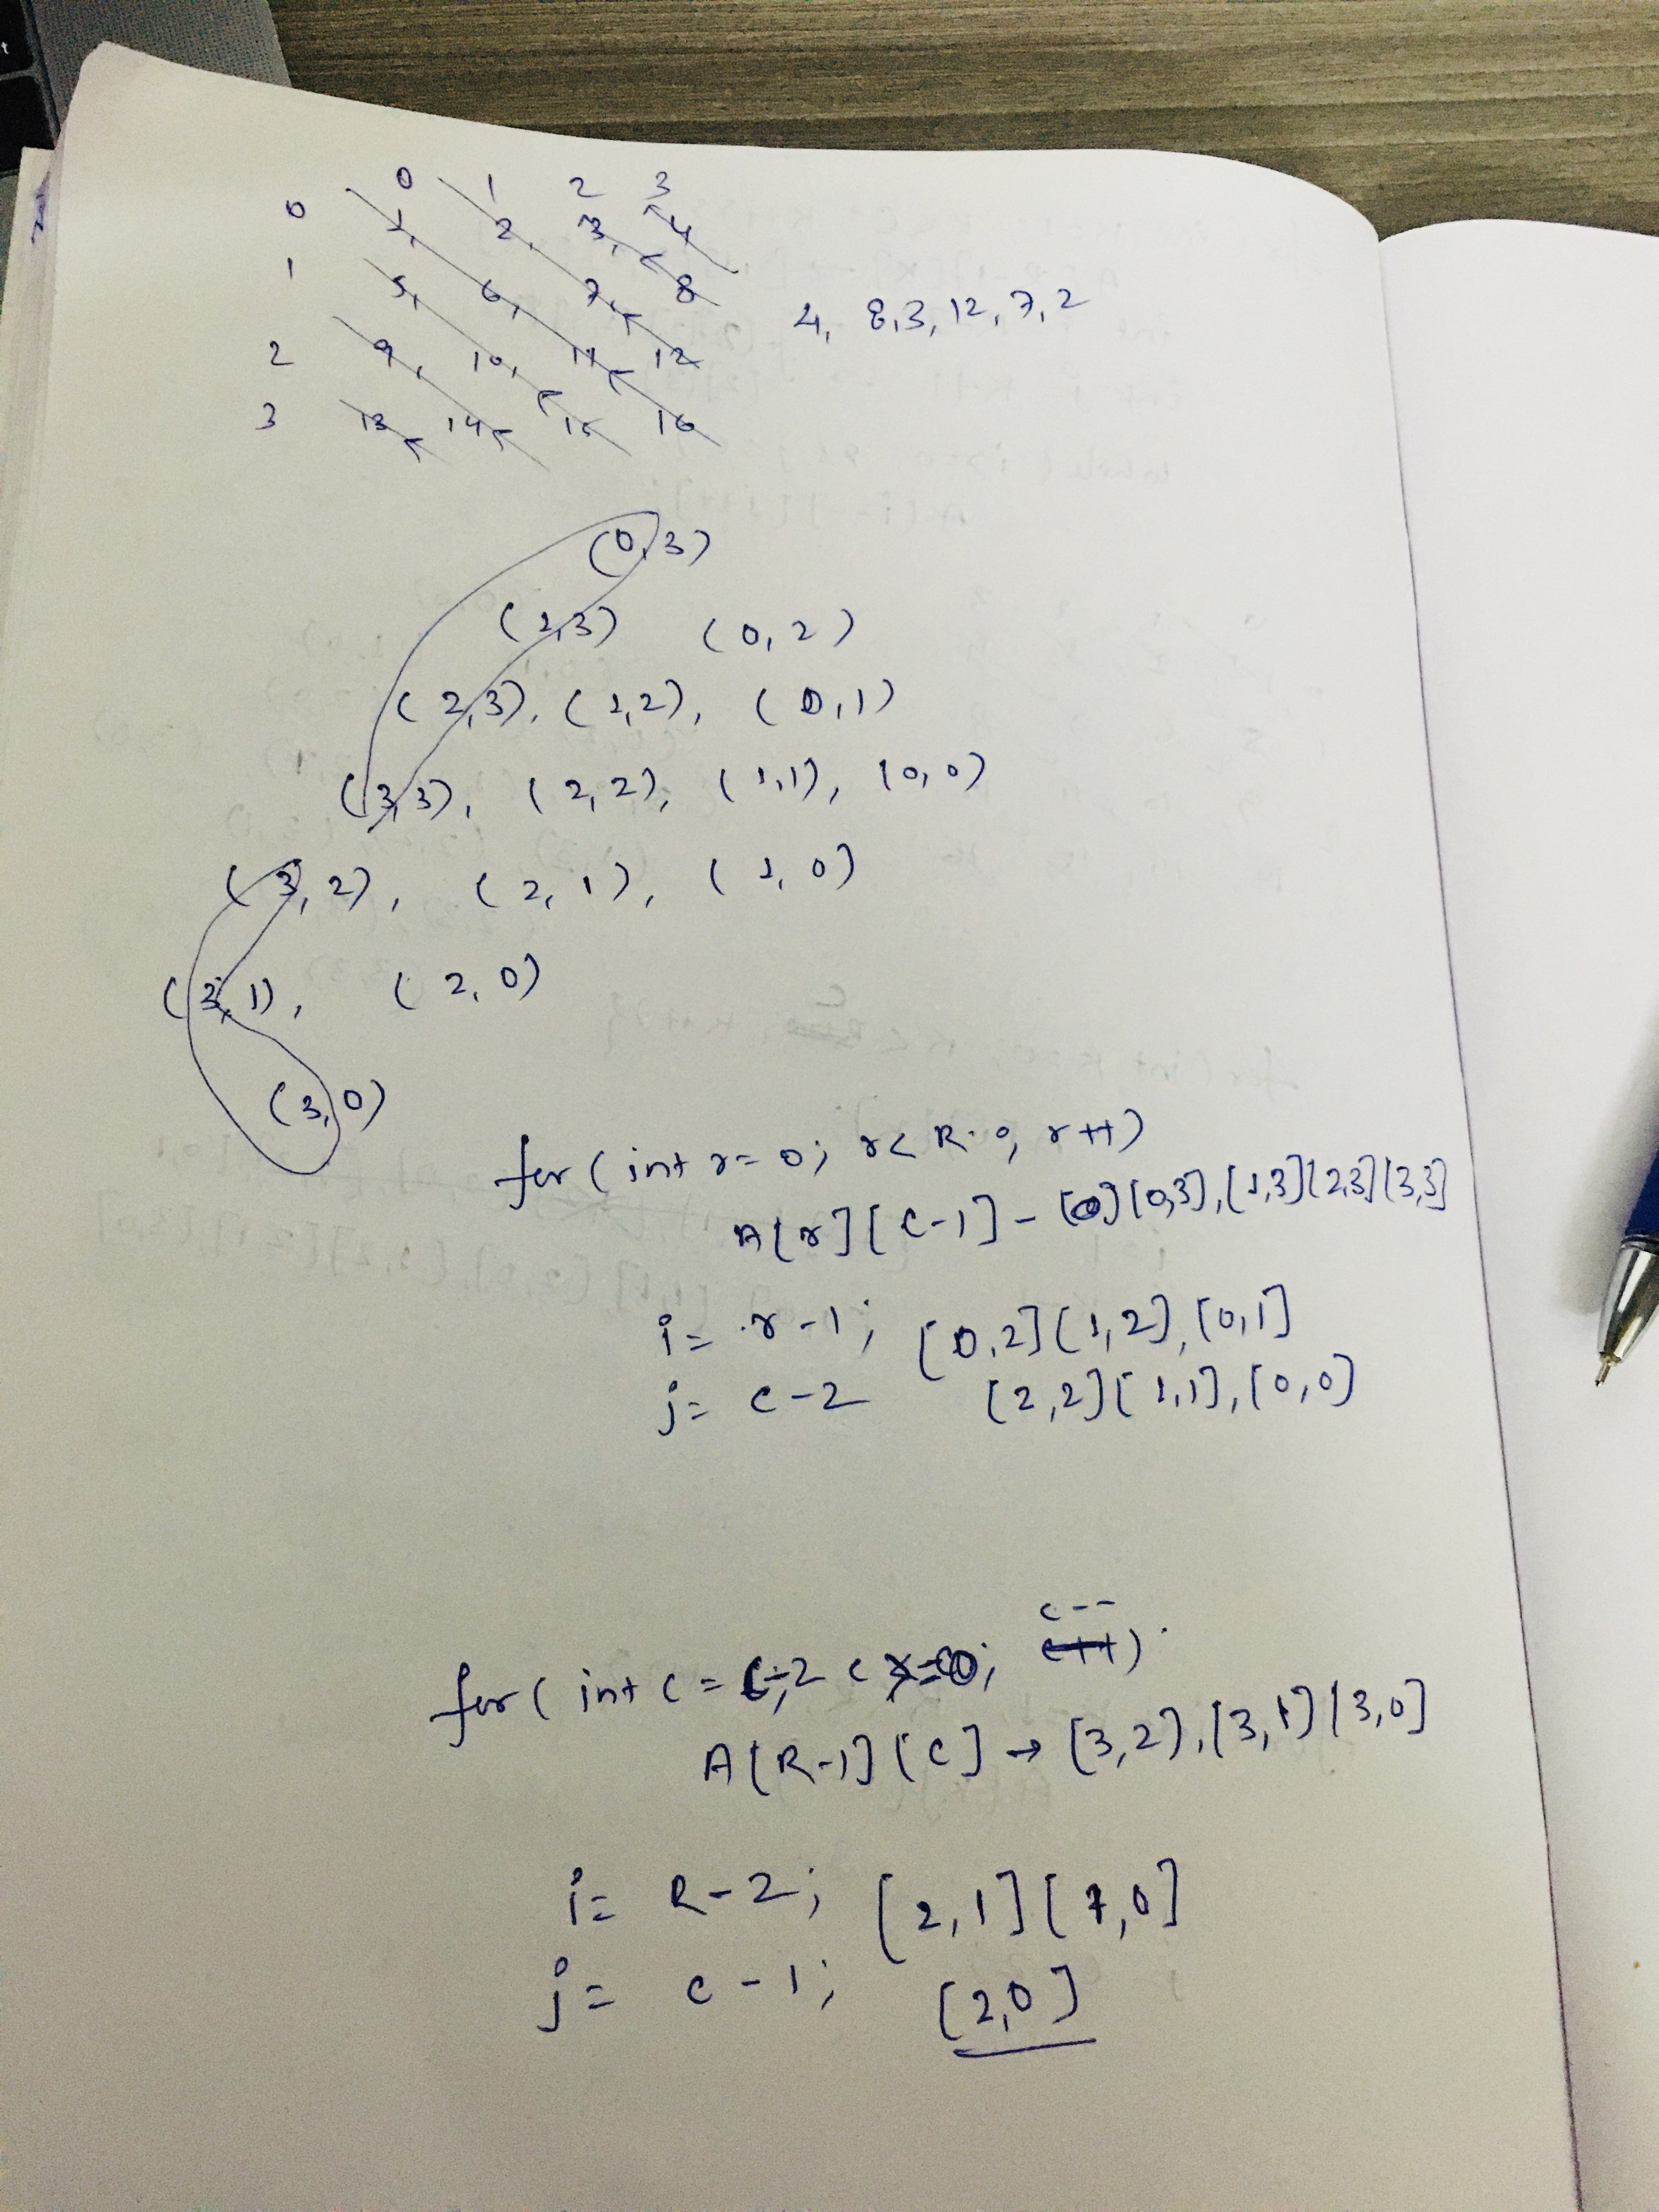 0 1 2 3
0 1, 2, 3, 4
1 5, 6, 7, 8
2 9, 10, 11, 12
3 13 14 15 16
4, 8,3, 12, 7, 2
(0,3)
(1,3) (0,2)
(2,3), (1,2), (0,1)
(3,3), (2,2), (1,1), (0,0)
(3,2), (2,1), (1,0)
(3,1), (2,0)
(3,0)
for( int r=0; r<R; r++)
A[r][c-1] - [0,3], [1,3][2,3][3,3]
i= r-1; [0,2][1,2],[0,1]
j= c-2 [2,2][1,1],[0,0]
c--
for( int c = c-2 c >=0; c++)
A[R-1][c] → [3,2),[3,1][3,0]
i= R-2; [2,1][1,0]
j= c-1; [2,0]